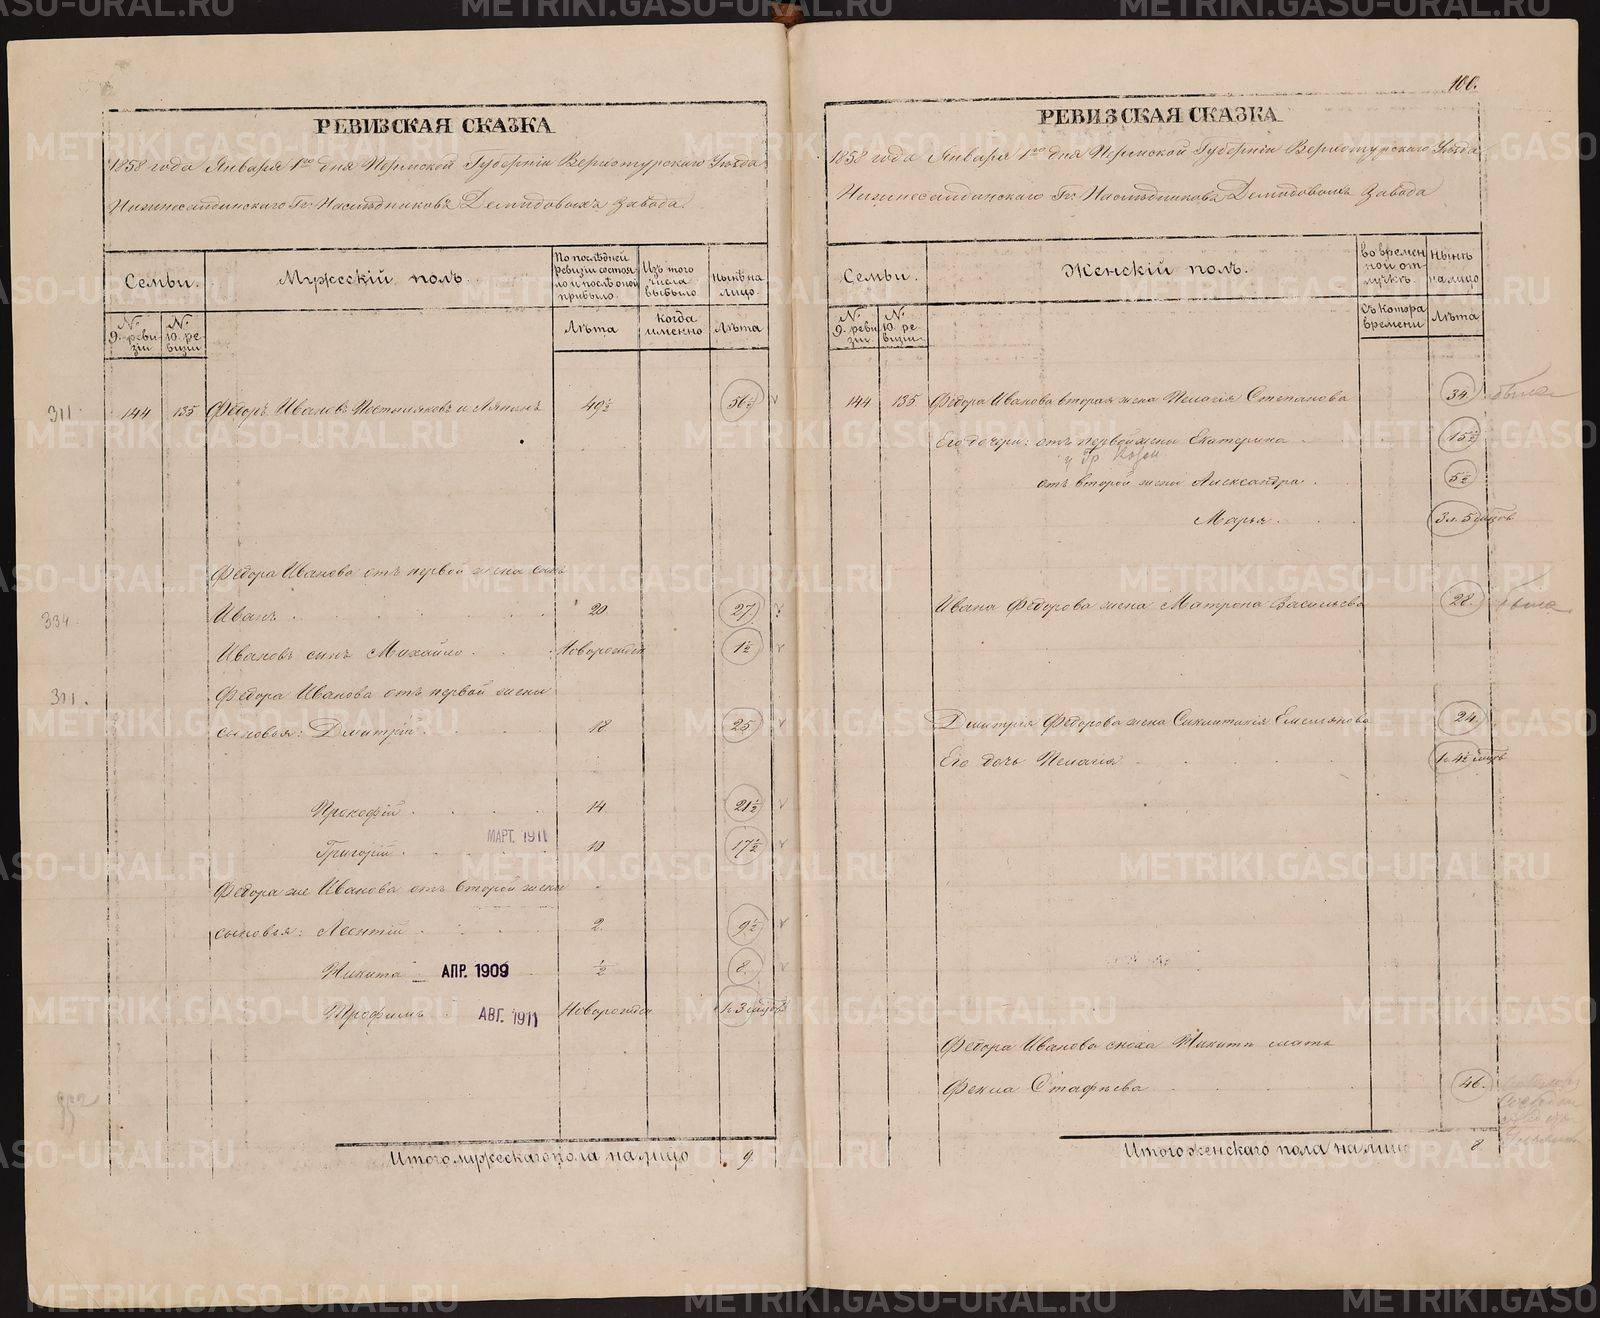 РЕВИЗСКАЯ СКАЗКА
1858 года Января 1го дня Пермской Губерніи Верхотурскаго Уѣзда
Нижнесалдинскаго Гг. Наслѣдниковъ Демидовыхъ Завода
Семьи.
Мужескій полъ.
По послѣдней ревизіи состояло и послѣ оной прибыло.
Изъ того числа выбыло
Нынѣ на лицо
№ 9. ревизіи
№ 10. ревизіи
Лѣта
когда именно
Лѣта
311 144 135 Федоръ Ивановъ Постниковъ и Ляпинъ 49½ 56½
Федора Иванова отъ первой жены сынъ
334 Иванъ 20 27
Ивановъ сынъ Михайло Новорожден 1½
311. Федора Иванова отъ первой жены
сыновья: Дмитрій 18 25
Прокофій 14 21½
МАРТ. 1911
Григорій 10 17½
Федора же Иванова отъ второй жены
сыновья: Леонтій 2 9½
Никита АПР. 1909 ½ 8
Трофимъ АВГ. 1911 Новорожден 1 л. 3 мцов
Итого мужескаго пола на лицо 9
100.
РЕВИЗСКАЯ СКАЗКА
1858 года Января 1го дня Пермской Губерніи Верхотурскаго Уѣзда
Нижнесалдинскаго Гг. Наслѣдниковъ Демидовыхъ Завода
Семьи.
Женскій полъ.
во временной отлучкѣ.
Нынѣ на лицо
№ 9. ревизіи
№ 10. ревизіи
Съ котора времени
Лѣта
144 135 Федора Иванова вторая жена Пелагія Степанова 34
Его дочери: отъ первой жены Екатерина 15½
отъ второй жены Александра 5½
Марья 3 л. 5 мцов
Ивана Федорова жена Матрона Васильева 28
Дмитрія Федорова жена Синклитикія Емельянова 24
Его дочь Пелагія 1 л. 4½ мцов
Федора Иванова сноха Никиты мать
Фекла Стафѣева 46.
Итого женскаго пола на лицо 8
METRIKI.GASO-URAL.RU